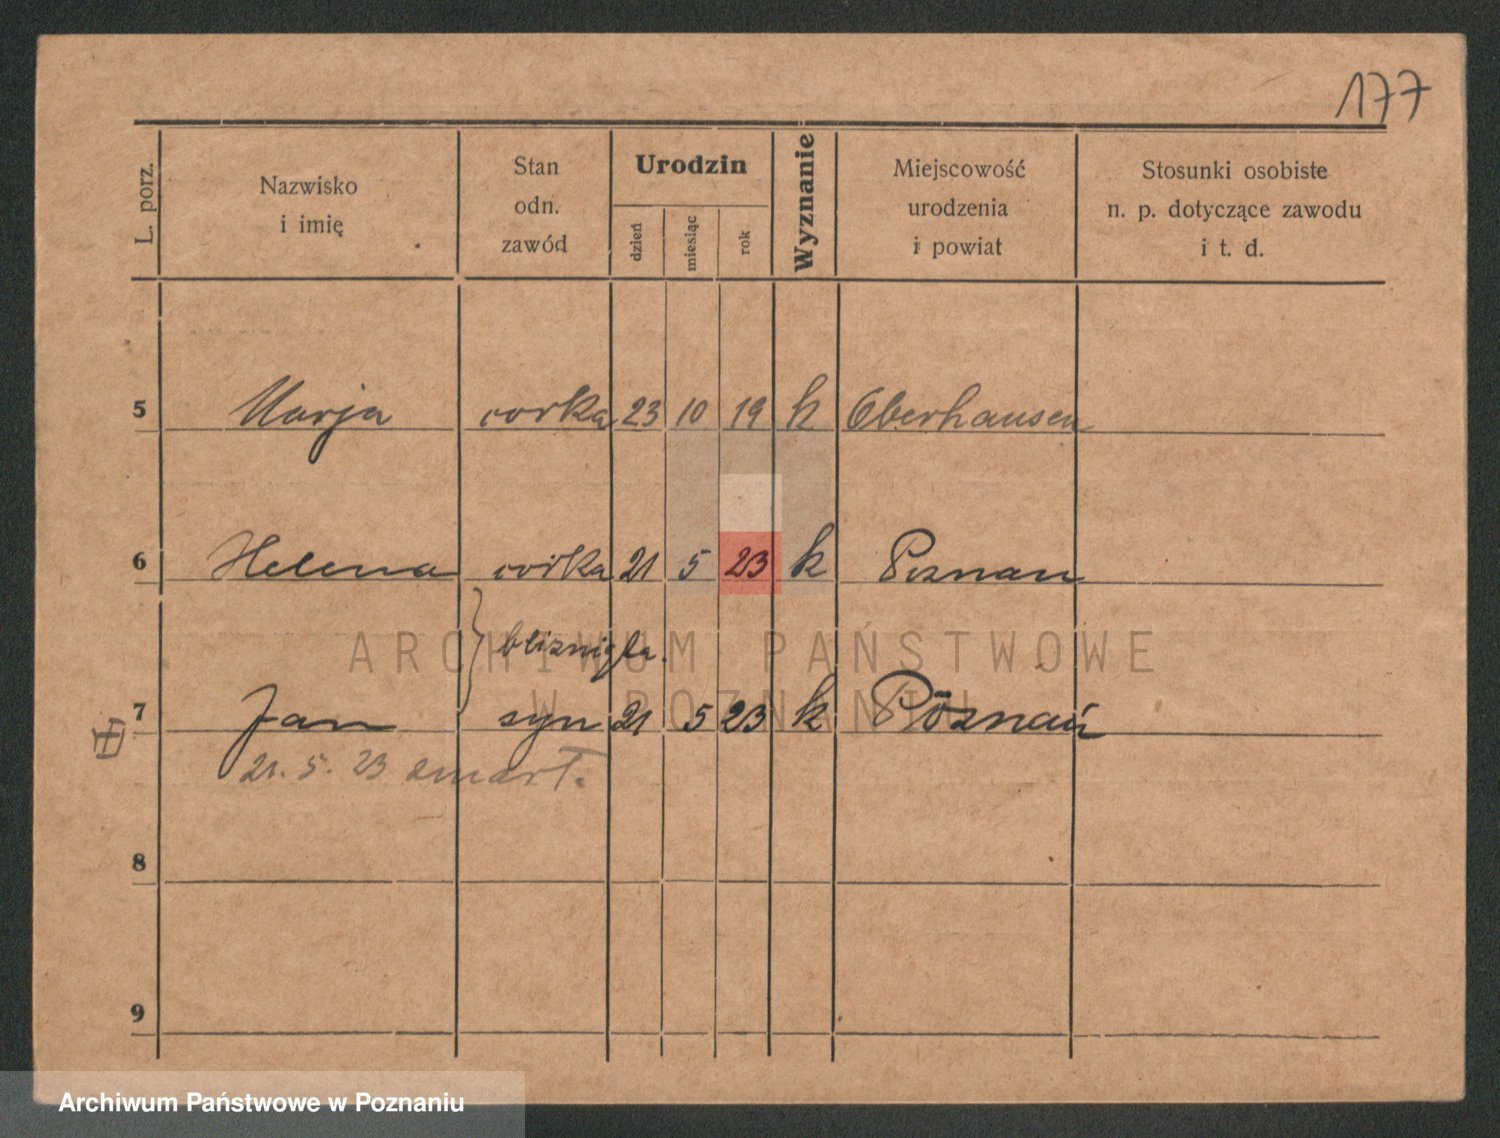 177
L. porz.
Nazwisko i imię
Stan odn. zawód
Urodzin
dzień
miesiąc
rok
Wyznanie
Miejscowość urodzenia i powiat
Stosunki osobiste n. p. dotyczące zawodu i t. d.
5 Marja corka 23 10 19 k Oberhausen
6 Helena córka 21 5 23 k Poznan
bliznięta.
7 Jan syn 21 5 23 k Poznań
21. 5. 23 zmarł.
8
9
ARCHIWUM PAŃSTWOWE
W POZNANIU
Archiwum Państwowe w Poznaniu